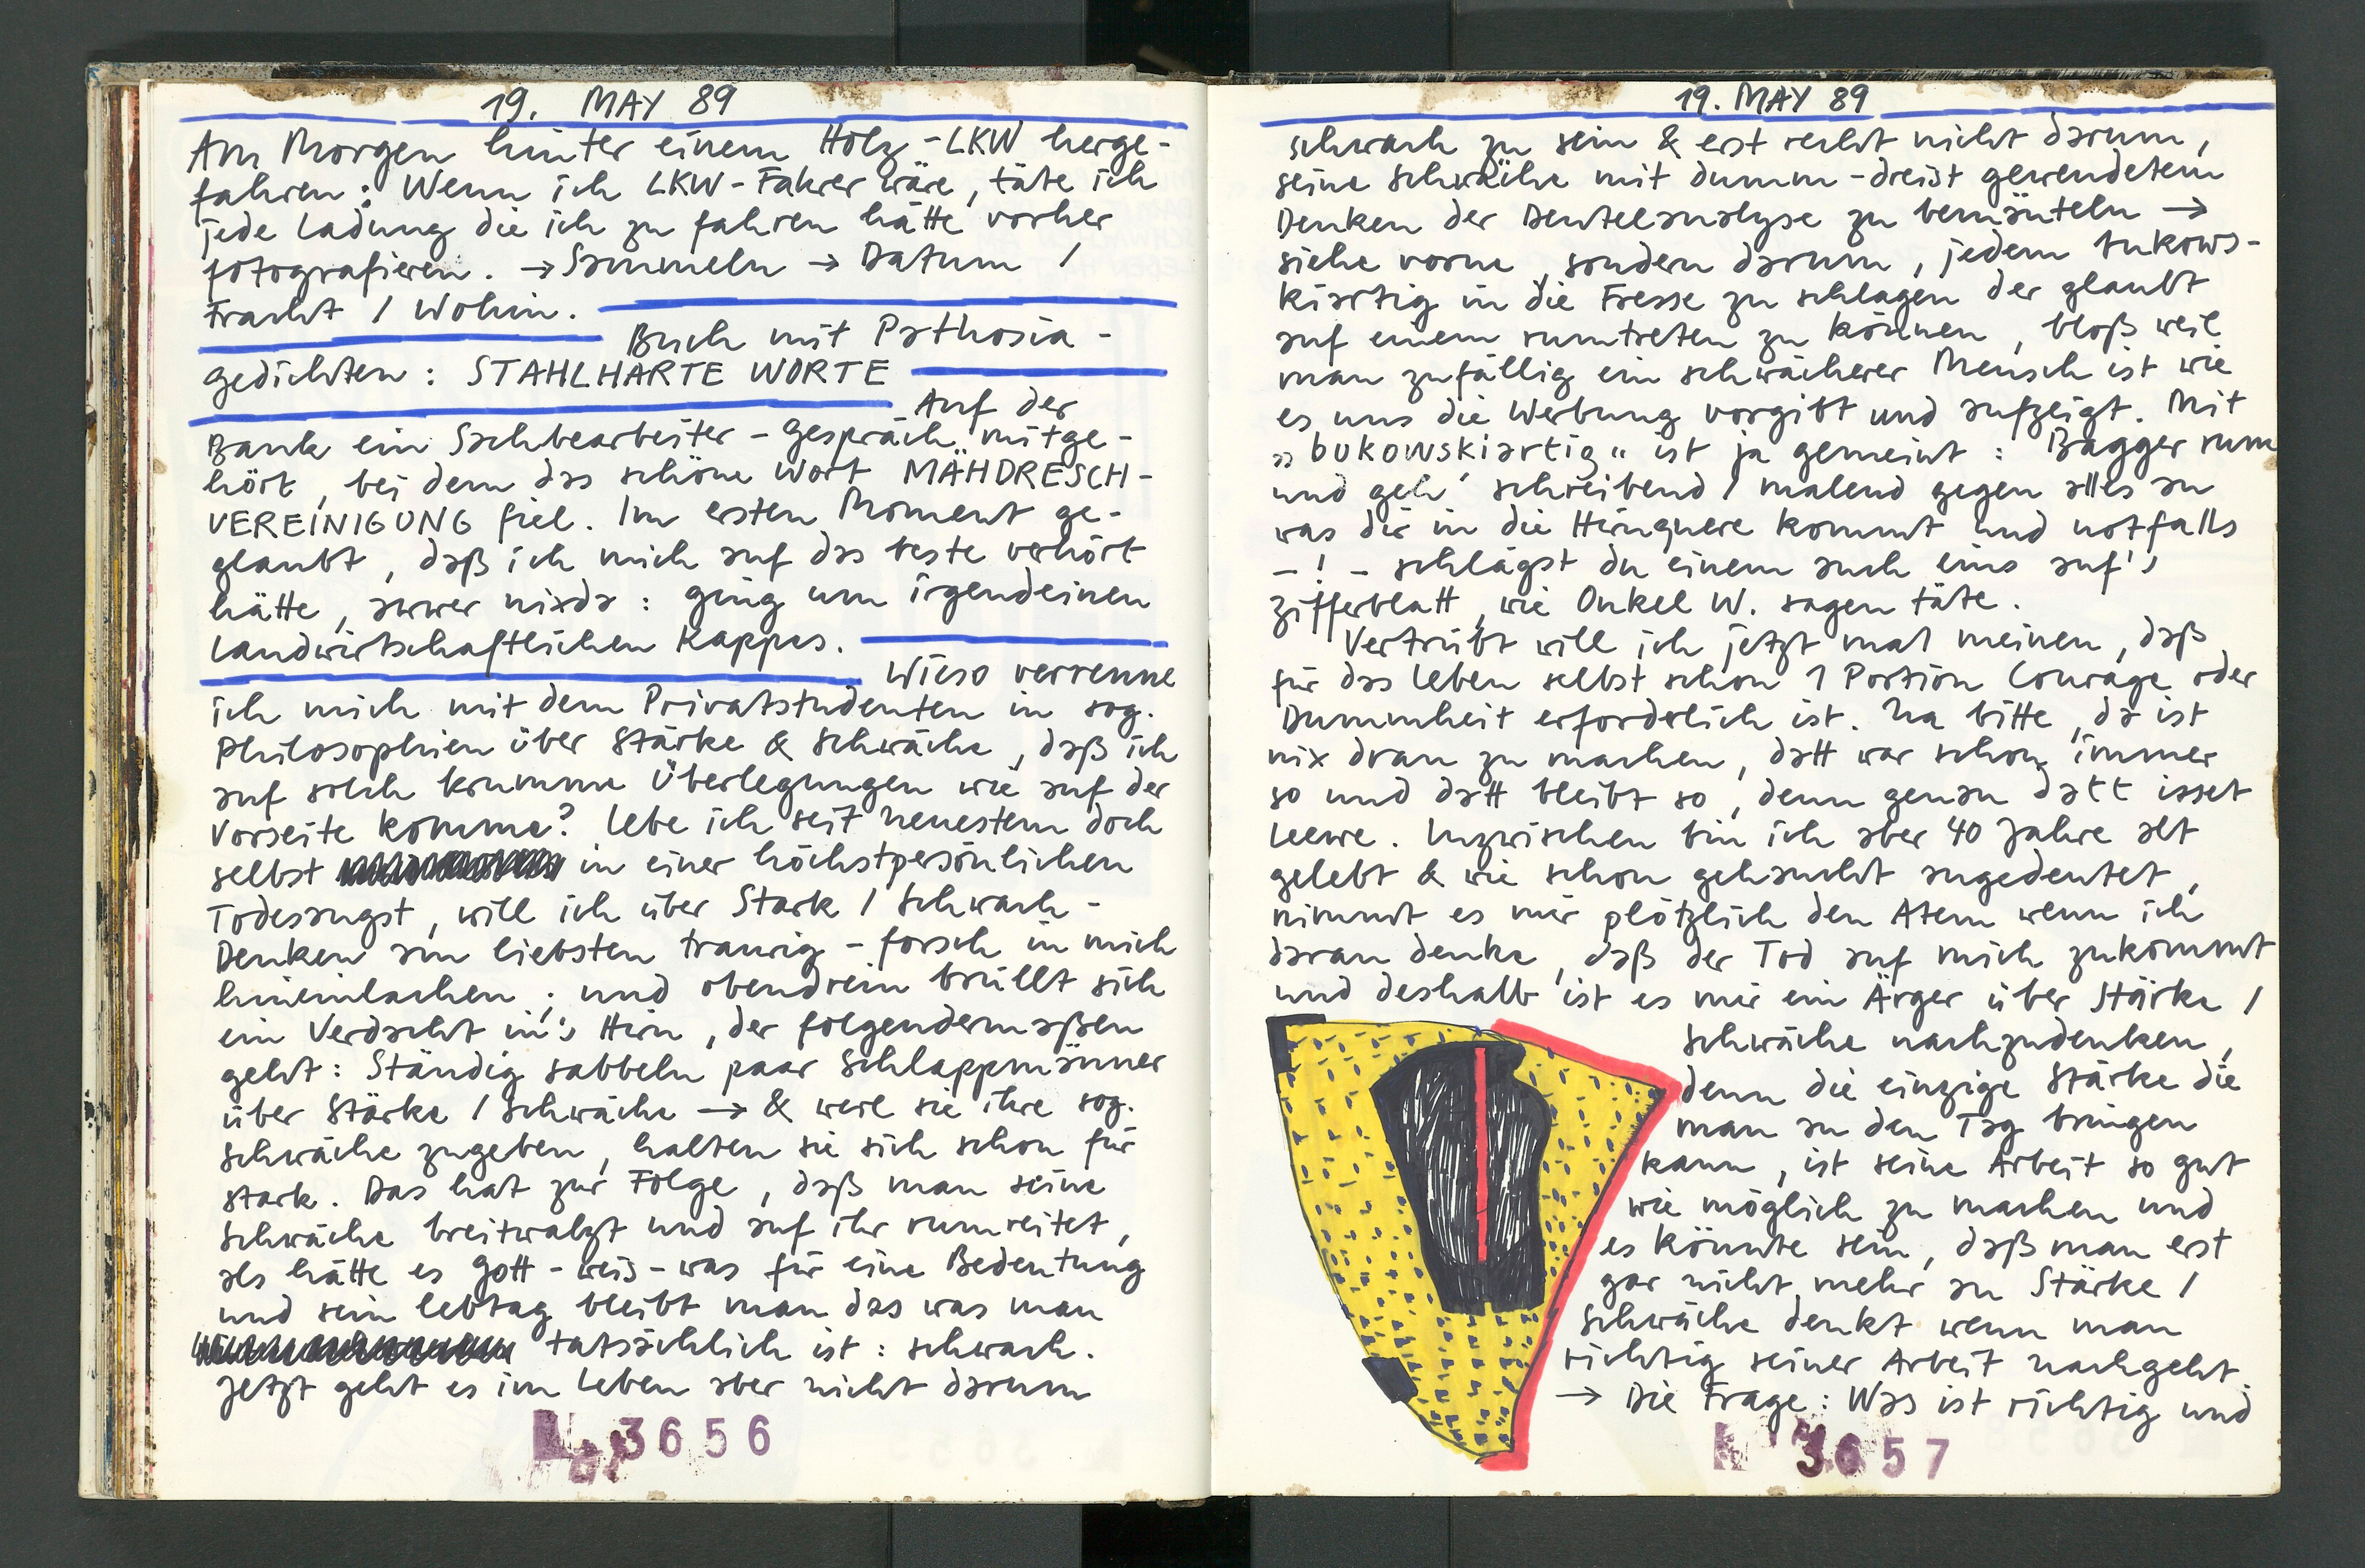 19. MAY 89
Am Morgen hinter einem Holz-LKW herge-
fahren: Wenn ich LKW-Fahrer wäre, täte ich
jede Ladung die ich zu fahren hätte vorher
fotografieren. → Sammeln → Datum /
Fracht / Wohin.
Buch mit Pathosia-
gedichten: STAHLHARTE WORTE
Auf der
Bank ein Sachbearbeiter-Gespräch mitge-
hört, bei dem das schöne Wort MÄHDRESCH-
VEREINIGUNG fiel. Im ersten Moment ge-
glaubt, daß ich mich auf das beste verhört
hätte, awwer nixda: ging um irgendeinen
landwirtschaftlichen Kappes.
Wieso verrenne
ich mich mit dem Privatstudenten in sog.
Philosophien über Stärke & Schwäche, daß ich
auf solch krumme Überlegungen wie auf der
Vorseite komme? Lebe ich seit neuestem doch
selbst in einer höchstpersönlichen
Todesangst, will ich über Stark / Schwach-
Denken am liebsten traurig-forsch in mich
hineinlachen; und obendrein brüllt sich
ein Verdacht in's Hirn, der folgendermaßen
geht: Ständig sabbeln paar Schlappmänner
über Stärke / Schwäche → & weil sie ihre sog.
Schwäche zugeben, halten sie sich schon für
stark. Das hat zur Folge, daß man seine
Schwäche breitwalzt und auf ihr rumreitet,
als hätte es Gott-weis-was für eine Bedeutung
und sein Lebtag bleibt man das was man
tatsächlich ist: schwach.
Jetzt geht es im Leben aber nicht darum
№ 3656
19. MAY 89
schwach zu sein & erst recht nicht darum,
seine Schwäche mit dumm-dreist gewendetem
Denken der Beutelanalyse zu bemänteln →
siehe vorne, sondern darum, jedem bukows-
kiartig in die Fresse zu schlagen der glaubt
auf einem rumtreten zu können, bloß weil
man zufällig ein schwächerer Mensch ist wie
es uns die Werbung vorgibt und aufzeigt. Mit
„bukowskiartig“ ist ja gemeint: Bagger rum
und geh' schreibend / malend gegen alles an
was dir in die Hirnquere kommt und notfalls
-!- schlägst du einem auch eins auf's
Zifferblatt, wie Onkel W. sagen täte.
Vertrübt will ich jetzt mal meinen, daß
für das Leben selbst schon 1 Portion Courage oder
Dummheit erforderlich ist. Na bitte, da ist
nix dran zu machen, datt war schon immer
so und datt bleibt so, denn genau datt isset
Leewe. Inzwischen bin ich aber 40 Jahre alt
gelebt & wie schon gehaucht angedeutet,
nimmt es mir plötzlich den Atem wenn ich
daran denke, daß der Tod auf mich zukommt
und deshalb ist es mir ein Ärger über Stärke /
Schwäche nachzudenken,
denn die einzige Stärke die
man an den Tag bringen
kann, ist seine Arbeit so gut
wie möglich zu machen und
es könnte sein, daß man erst
gar nicht mehr an Stärke /
Schwäche denkt wenn man
richtig seiner Arbeit nachgeht.
→ Die Frage: Was ist richtig und
3657